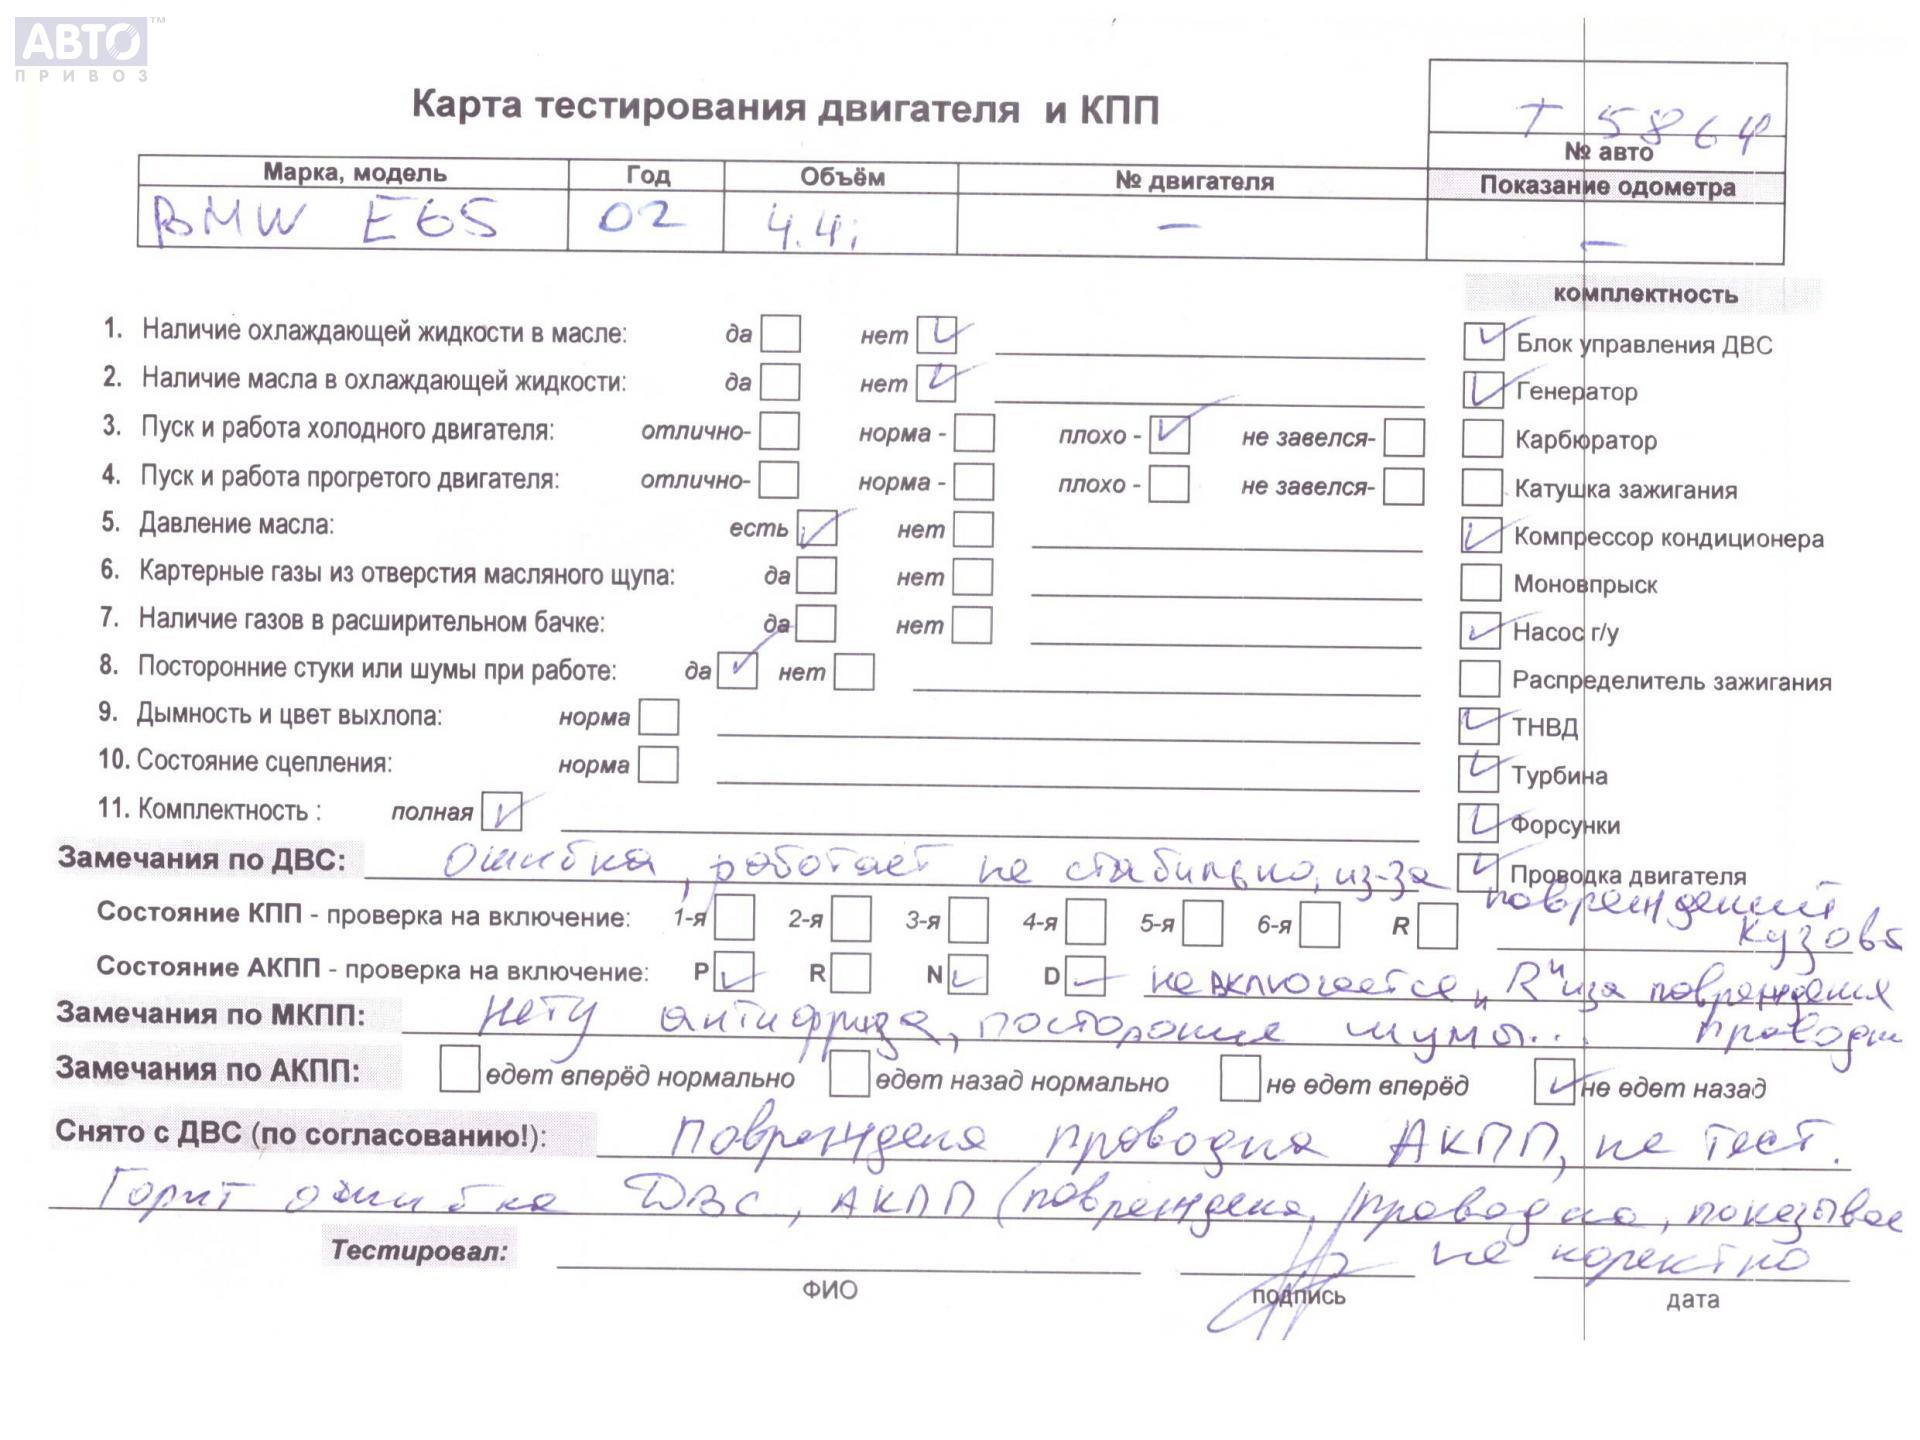 АВТО ™
ПРИВОЗ
Карта тестирования двигателя и КПП
Т 5864
№ авто
Марка, модель Год Объём № двигателя Показание одометра
BMW E65 02 4.4i – –
комплектность
1. Наличие охлаждающей жидкости в масле: да нет ✓
Блок управления ДВС ✓
2. Наличие масла в охлаждающей жидкости: да нет ✓
Генератор ✓
3. Пуск и работа холодного двигателя: отлично- норма - плохо - ✓ не завелся-
Карбюратор
4. Пуск и работа прогретого двигателя: отлично- норма - плохо - не завелся-
Катушка зажигания
5. Давление масла: есть ✓ нет
Компрессор кондиционера ✓
6. Картерные газы из отверстия масляного щупа: да нет
Моновпрыск
7. Наличие газов в расширительном бачке: да нет
Насос г/у ✓
8. Посторонние стуки или шумы при работе: да ✓ нет
Распределитель зажигания
9. Дымность и цвет выхлопа: норма
ТНВД ✓
10. Состояние сцепления: норма
Турбина ✓
11. Комплектность : полная ✓
Форсунки ✓
Проводка двигателя ✓
Замечания по ДВС: Ошибка, работает не стабильно, из-за повреждений кузова
Состояние КПП - проверка на включение: 1-я 2-я 3-я 4-я 5-я 6-я R
Состояние АКПП - проверка на включение: P ✓ R N ✓ D ✓ не включается "R" иза повреждения проводки
Замечания по МКПП: нету антифриза, посторонние шумы...
Замечания по АКПП: едет вперёд нормально едет назад нормально не едет вперёд ✓ не едет назад
Снято с ДВС (по согласованию!): Повреждена проводка АКПП, не тест.
Горит ошибка ДВС, АКПП (повреждена проводка, показывае
не коректно
Тестировал:
ФИО подпись дата